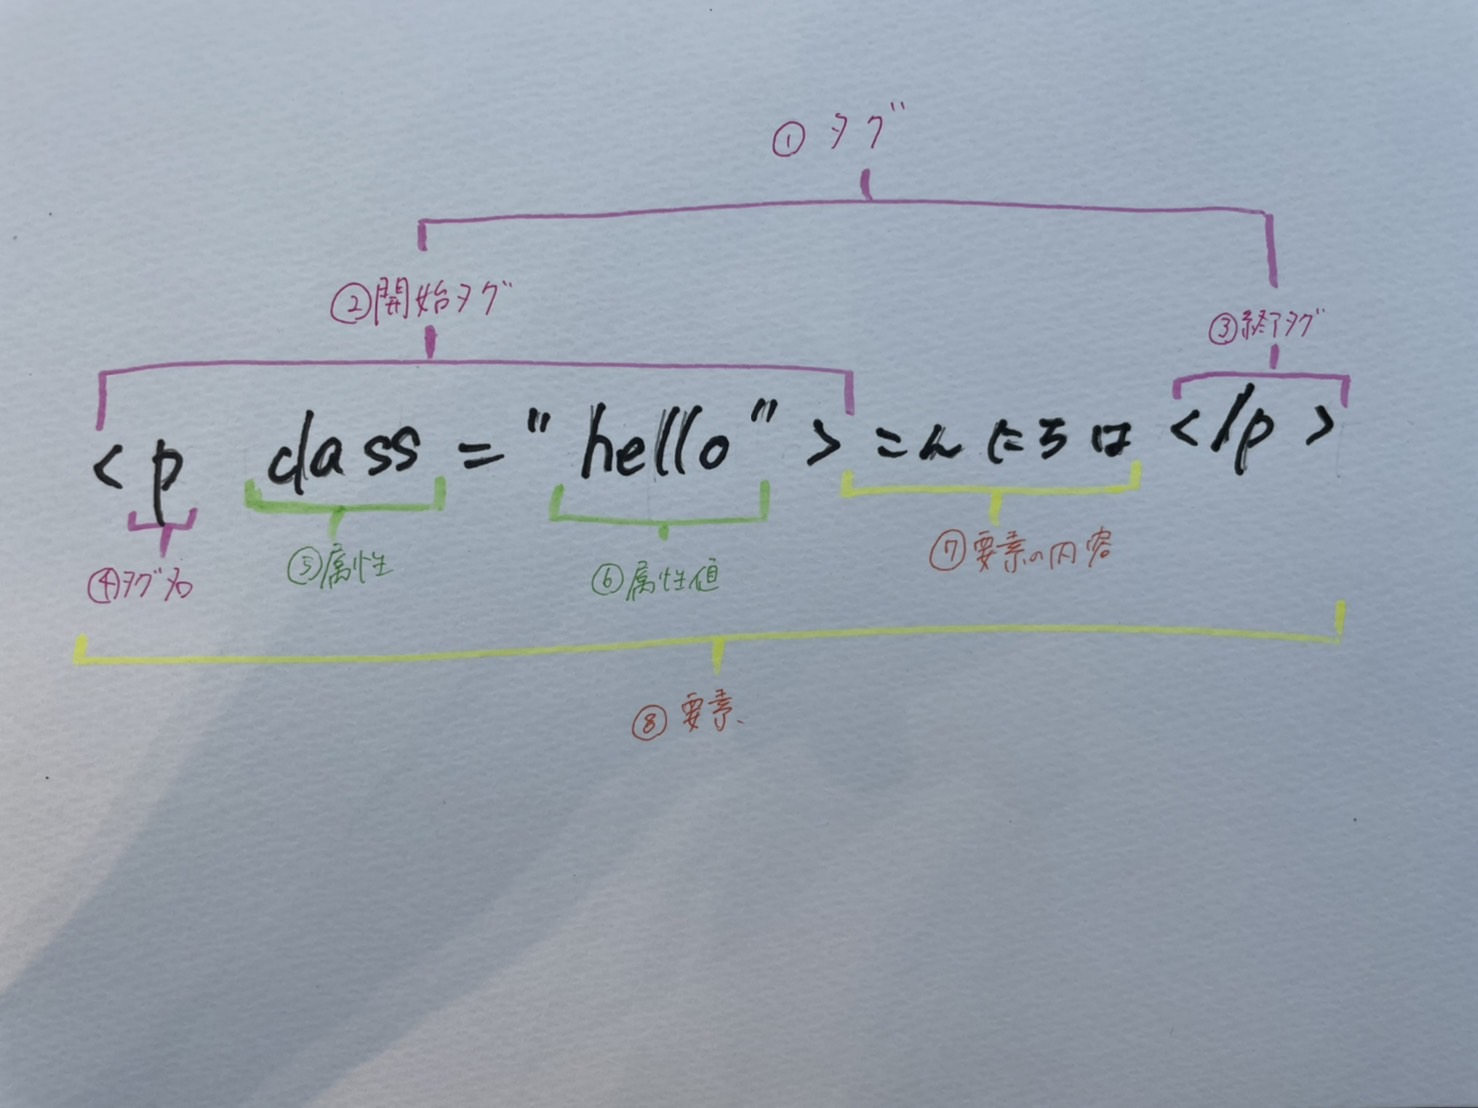 ① タグ
②開始タグ
③終了タグ
<p class="hello">こんにちは</p>
④タグ名
⑤属性
⑥属性値
⑦要素の内容
⑧要素